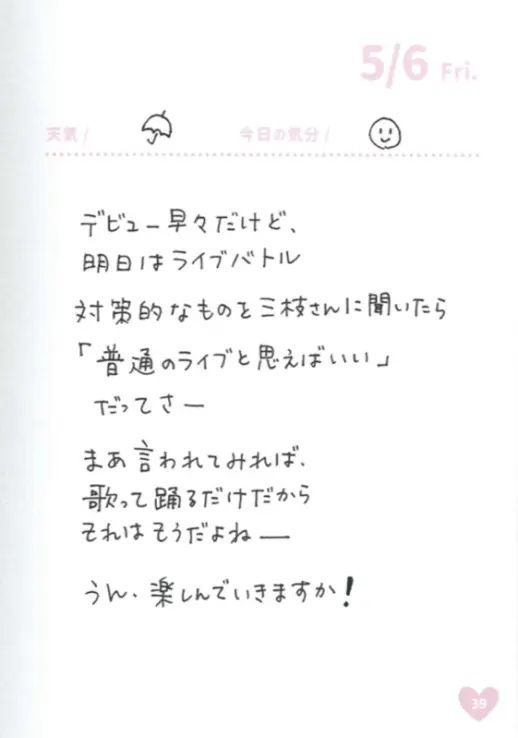 5/6 Fri.
天気/ 今日の気分/
デビュー早々だけど、
明日はライブバトル
対策的なものを三枝さんに聞いたら
「普通のライブと思えばいい」
だってさー
まあ言われてみれば、
歌って踊るだけだから
それはそうだよねー
うん、楽しんでいきますか!
39